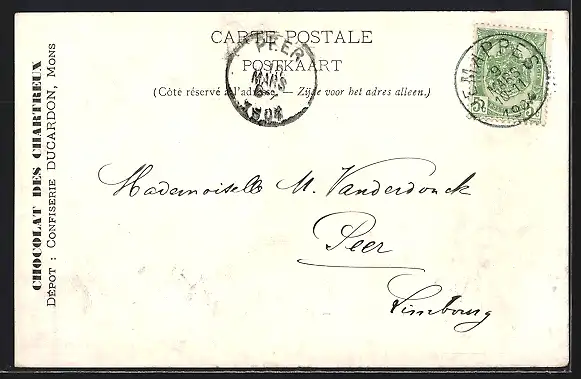 CARTE POSTALE
POSTKAART
(Côté réservé à l'adresse. — Zijde voor het adres alleen.)
PEER
MARS
1904
JEMAPPES
9
MARS
1904
CHOCOLAT DES CHARTREUX
DÉPOT : CONFISERIE DUCARDON, MONS
Mademoiselle M. Vanderdonck
Peer
Limbourg